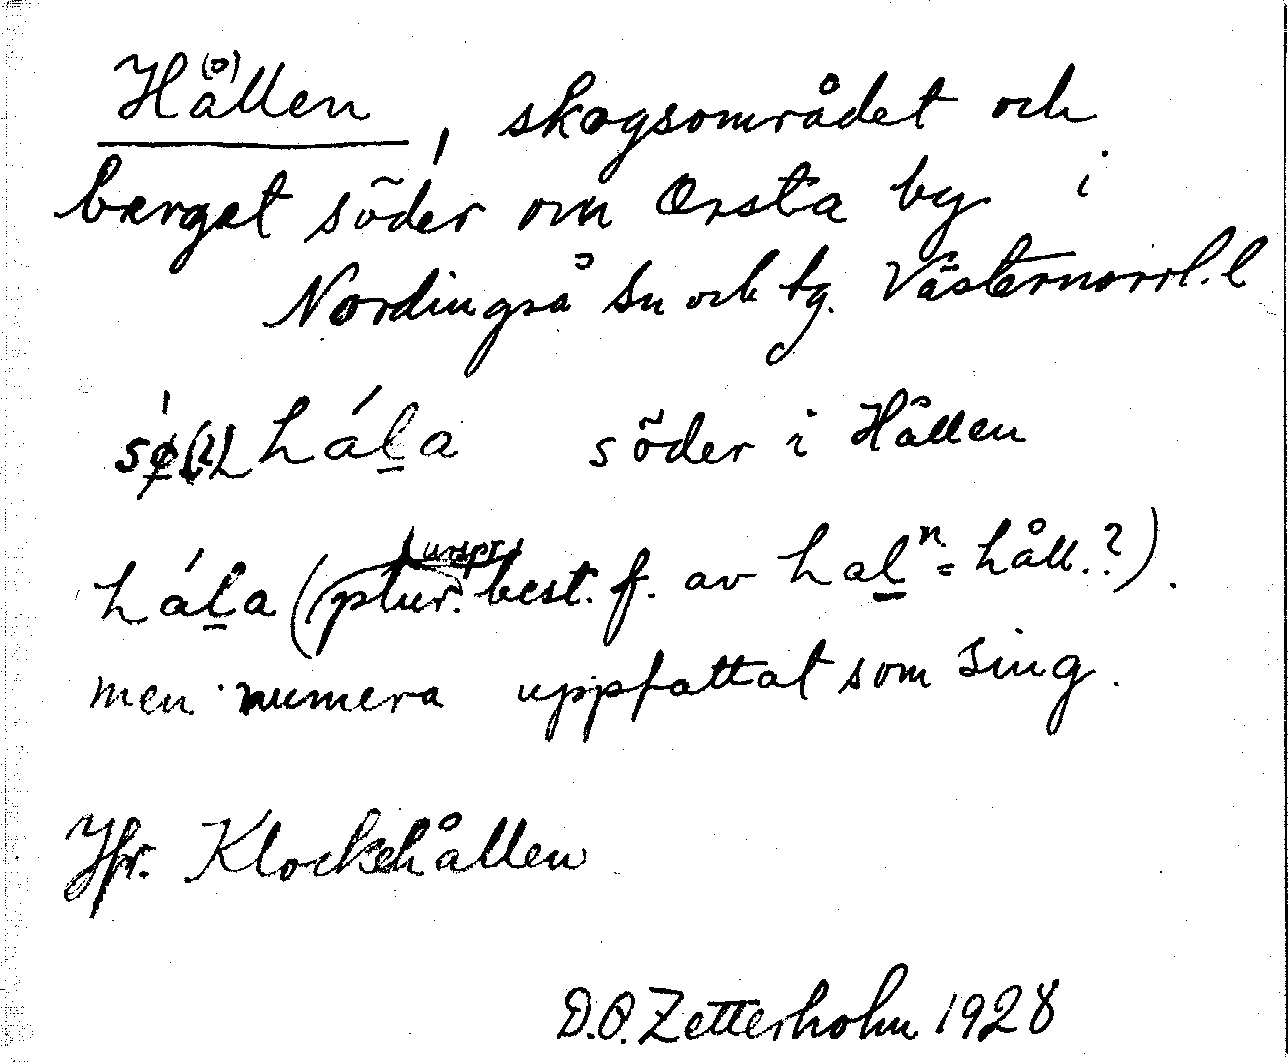 Hå(o)llen, skogsområdet och
berget söder om Orsta by i
Nordingrå sn och tg. Västernorrl. l
hál̲a söder i Hållen
hál̲a (urspr. plur. best. f. av hal̲ⁿ = håll.?).
men numera uppfattat som sing.
Jfr. Klockehållen
D.O. Zetterholm 1928